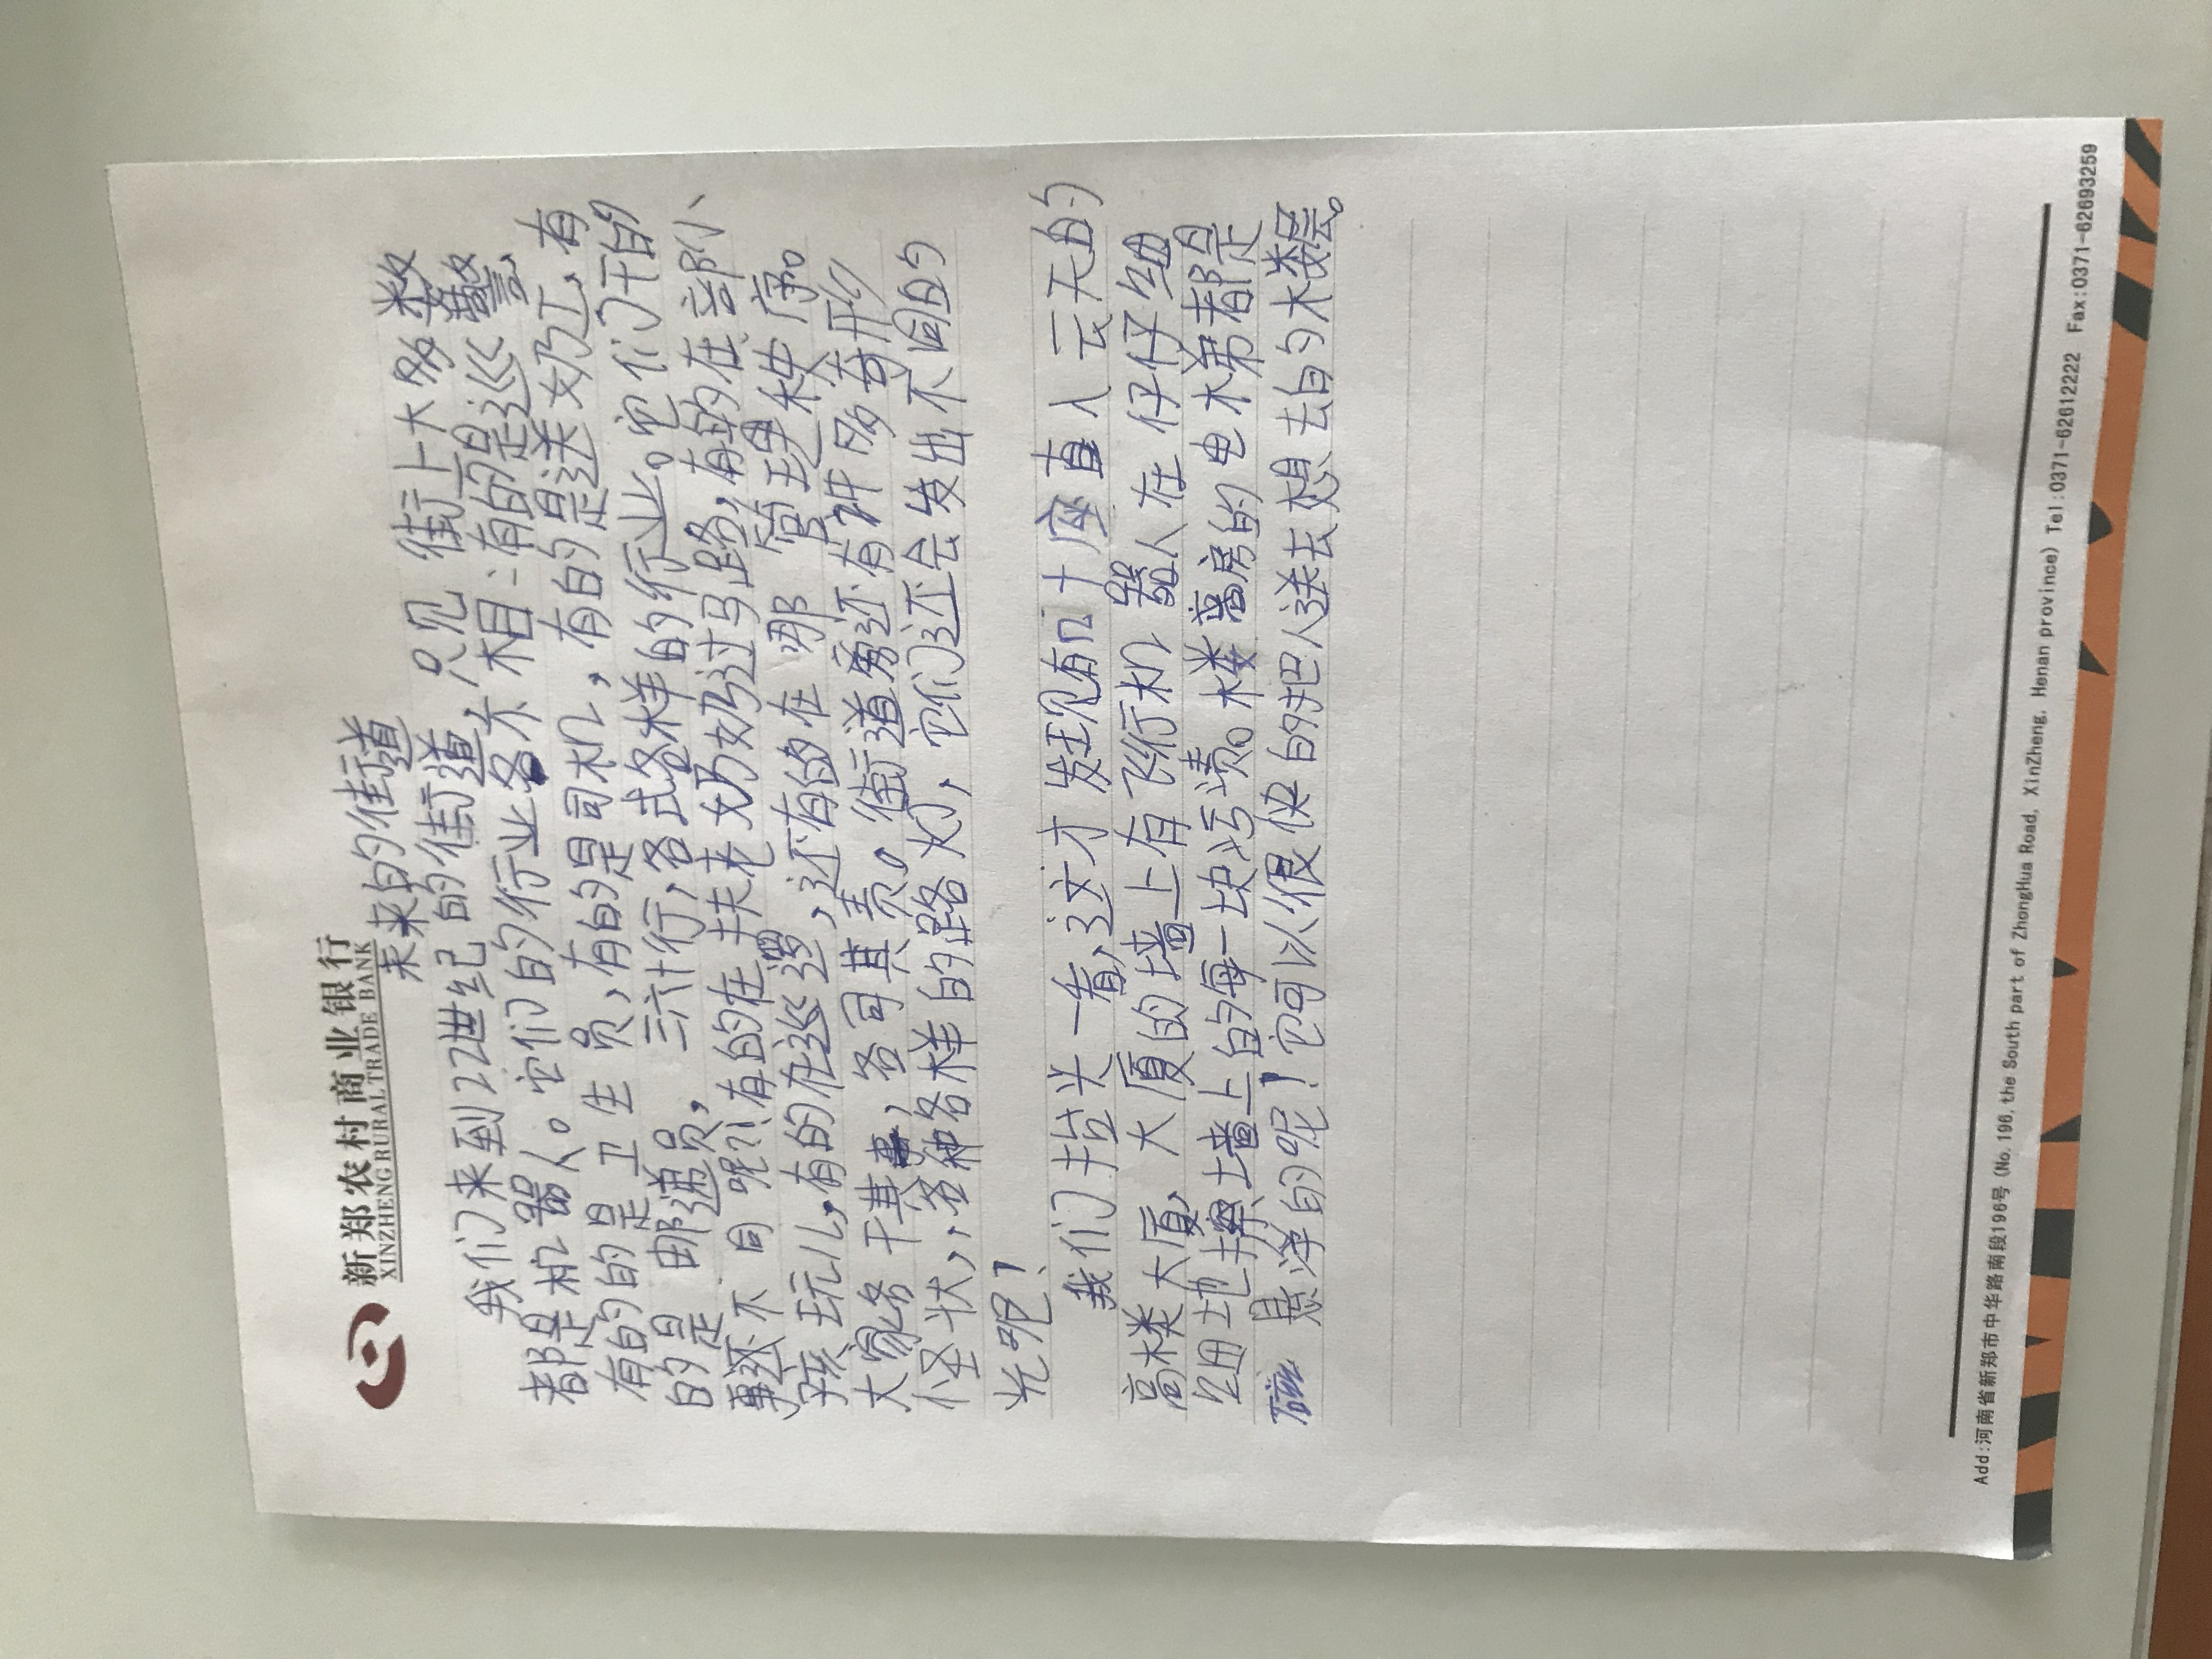 新郑农村商业银行
XINZHENG RURAL TRADE BANK
未来的街道
我们来到22世纪的街道,只见街上大多数
都是机器人。它们的行业各不相:有的是巡警,
有的的是卫生员,有的是司机,有的是送奶工,有
的是邮递员,三六十行,各式各样的行业。它们干的
事还不同呢?!有的在扶老奶奶过马路,有的在部小
孩玩儿,有的在巡逻,还有的在哪管理秩序。
大家各干其事,各司其责。街道旁还有许多奇形
怪状,各种各样的路灯,它们还会发出不同的
光呢!
我们抬头一看,这才发现有几十座直入云天的
高楼大厦,大厦的墙上有飞行机器人在仔仔细
细地擦墙上的每一块污渍。楼房的电木弟都是
磁悬浮的呢!它可以很快的把人送去想去的木娄层。
Add:河南省新郑市中华路南段196号(No.196,the South part of ZhongHua Road, XinZheng, Henan province) Tel:0371-62612222 Fax:0371-62693259